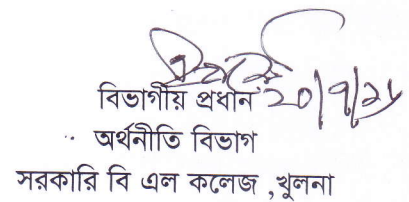 বিভাগীয় প্রধান
অর্থনীতি বিভাগ
সরকারি বি এল কলেজ ,খুলনা